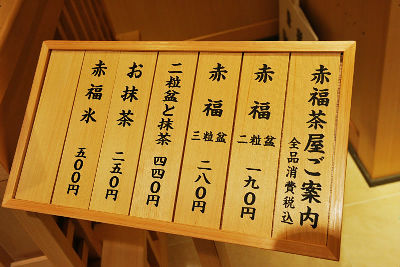 赤福茶屋ご案内
全品消費税込
赤福 二粒盆 一九〇円
赤福 三粒盆 二八〇円
二粒盆と抹茶 四四〇円
お抹茶 二五〇円
赤福氷 五〇〇円